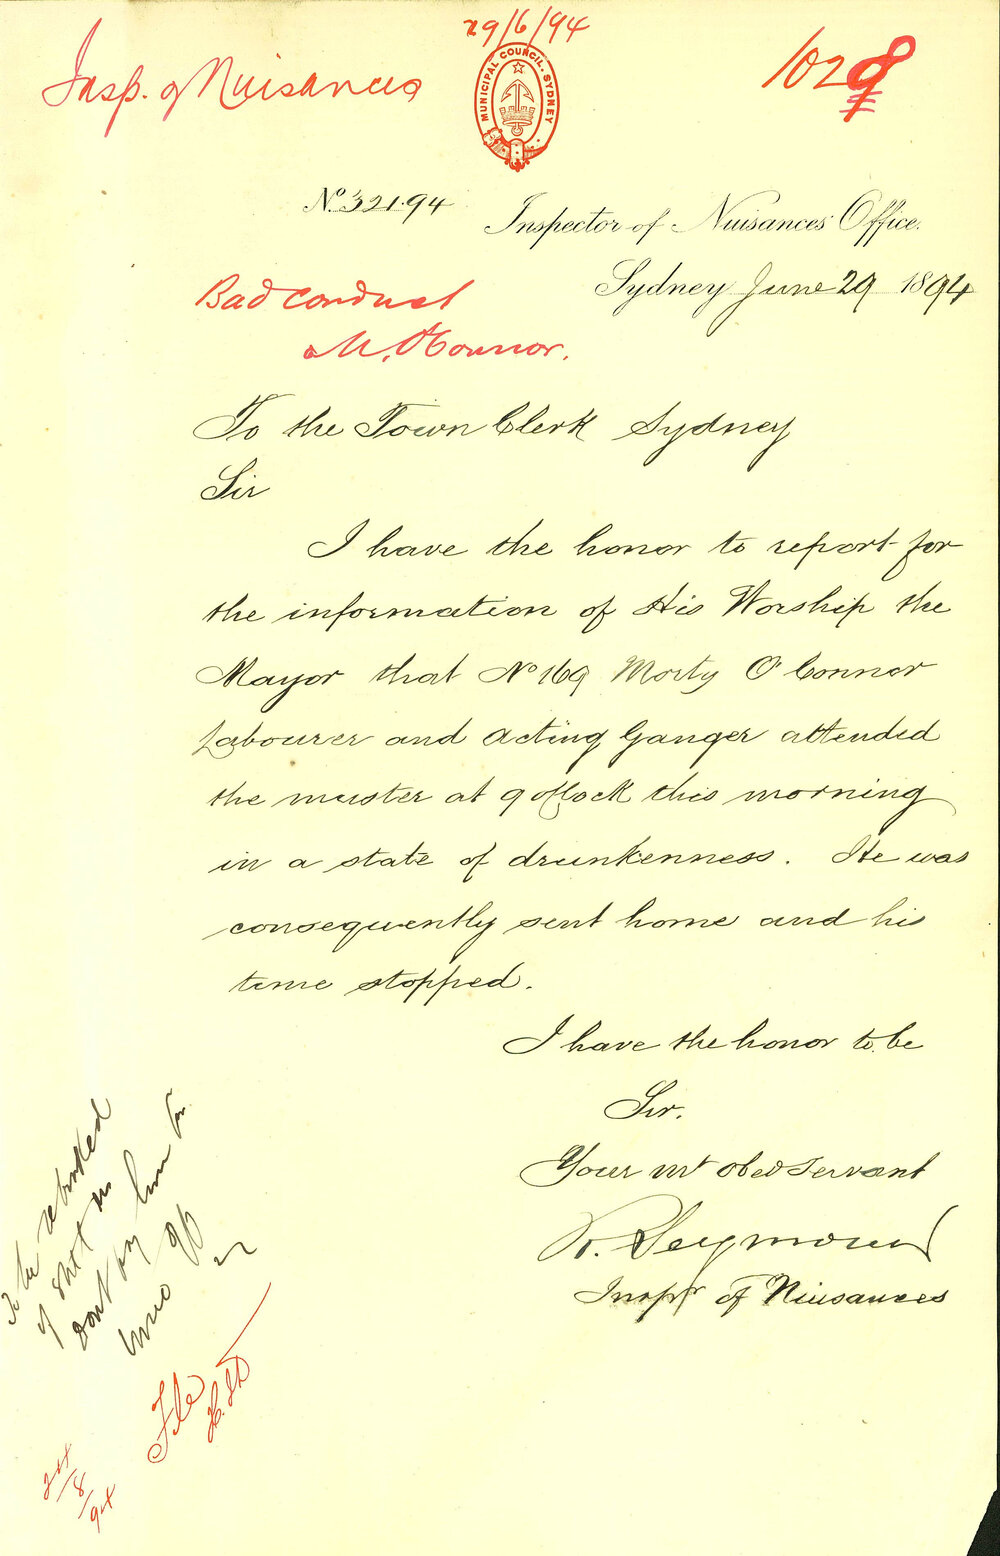 29/6/94
Insp. of Nuisances
1028
MUNICIPAL COUNCIL. SYDNEY
No. 321.94
Inspector of Nuisances Office.
Sydney June 29 1894
Bad conduct
M. O'Connor.
To the Town Clerk Sydney
Sir
I have the honor to report for
the information of His Worship the
Mayor that No 169 Morty O'Connor
Labourer and Acting Ganger attended
the muster at 9 oClock this morning
in a state of drunkenness. He was
consequently sent home and his
time stopped.
I have the honor to be
Sir.
Your mt obed Servant
R. Seymour
Inspr of Nuisances
To be
of
dont pay him for
time off
File
24/8/94